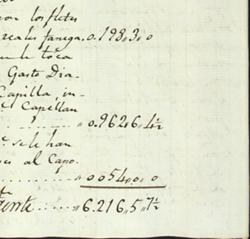 los fletes
reales fanega. 0.198,,3,,0
le toca
Gasto Dia-
Capilla, in-
Capellan
0.962,,6,,4½
se le han
al Capo.
0054,,0,,0
6.216,,5,,7½